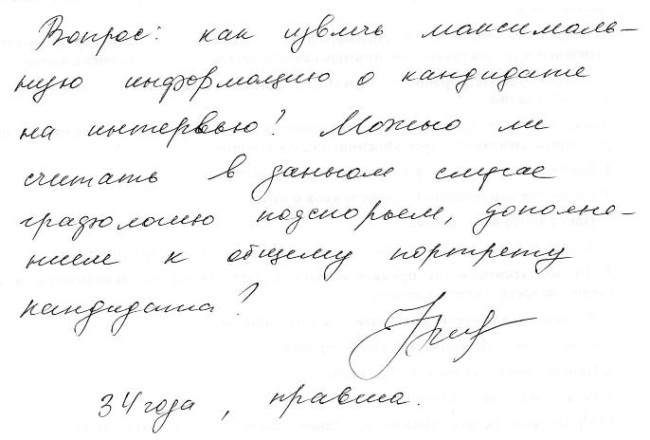 Вопрос: как извлечь максималь-
ную информацию о кандидате
на интервью? Можно ли
считать в данном случае
графологию подспорьем, дополне-
нием к общему портрету
кандидата?
34 года, правша.